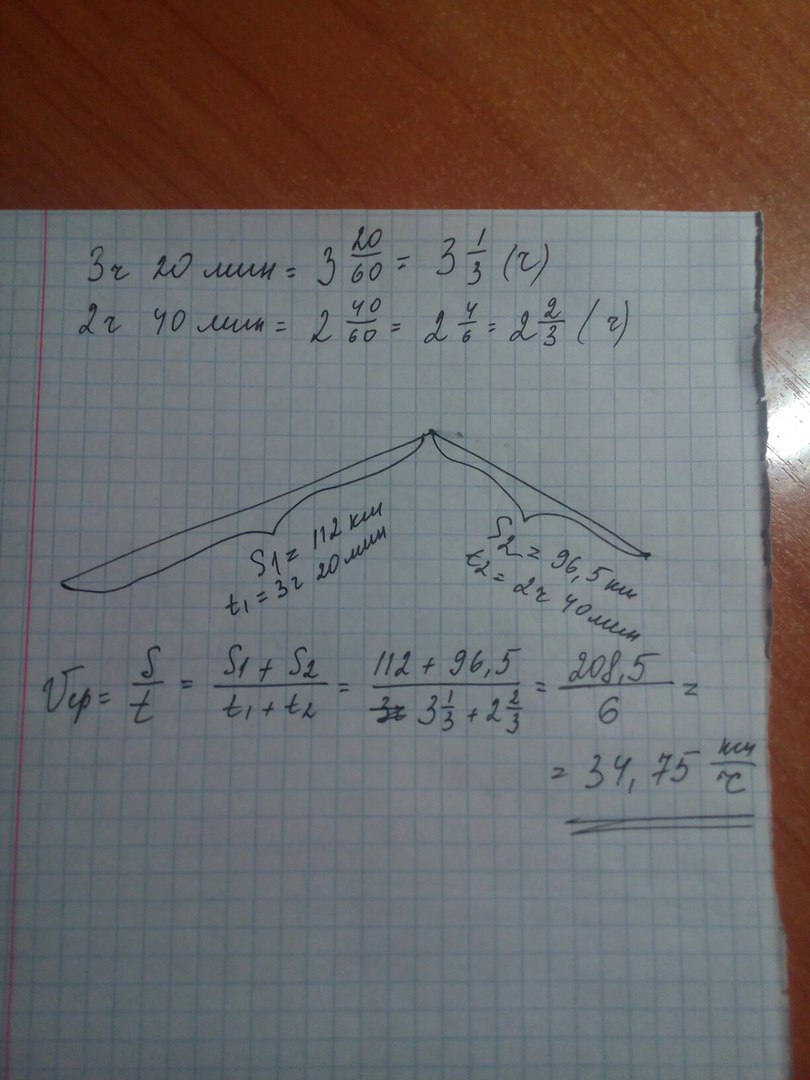 3ч 20 мин = 3 20/60 = 3 1/3 (ч)
2ч 40 мин = 2 40/60 = 2 4/6 = 2 2/3 (ч)
S1 = 112 км
t1 = 3ч 20 мин
S2 = 96,5 км
t2 = 2ч 40 мин
Vср = S/t = (S1 + S2)/(t1 + t2) = (112 + 96,5)/(3 1/3 + 2 2/3) = 208,5/6 =
= 34,75 км/ч